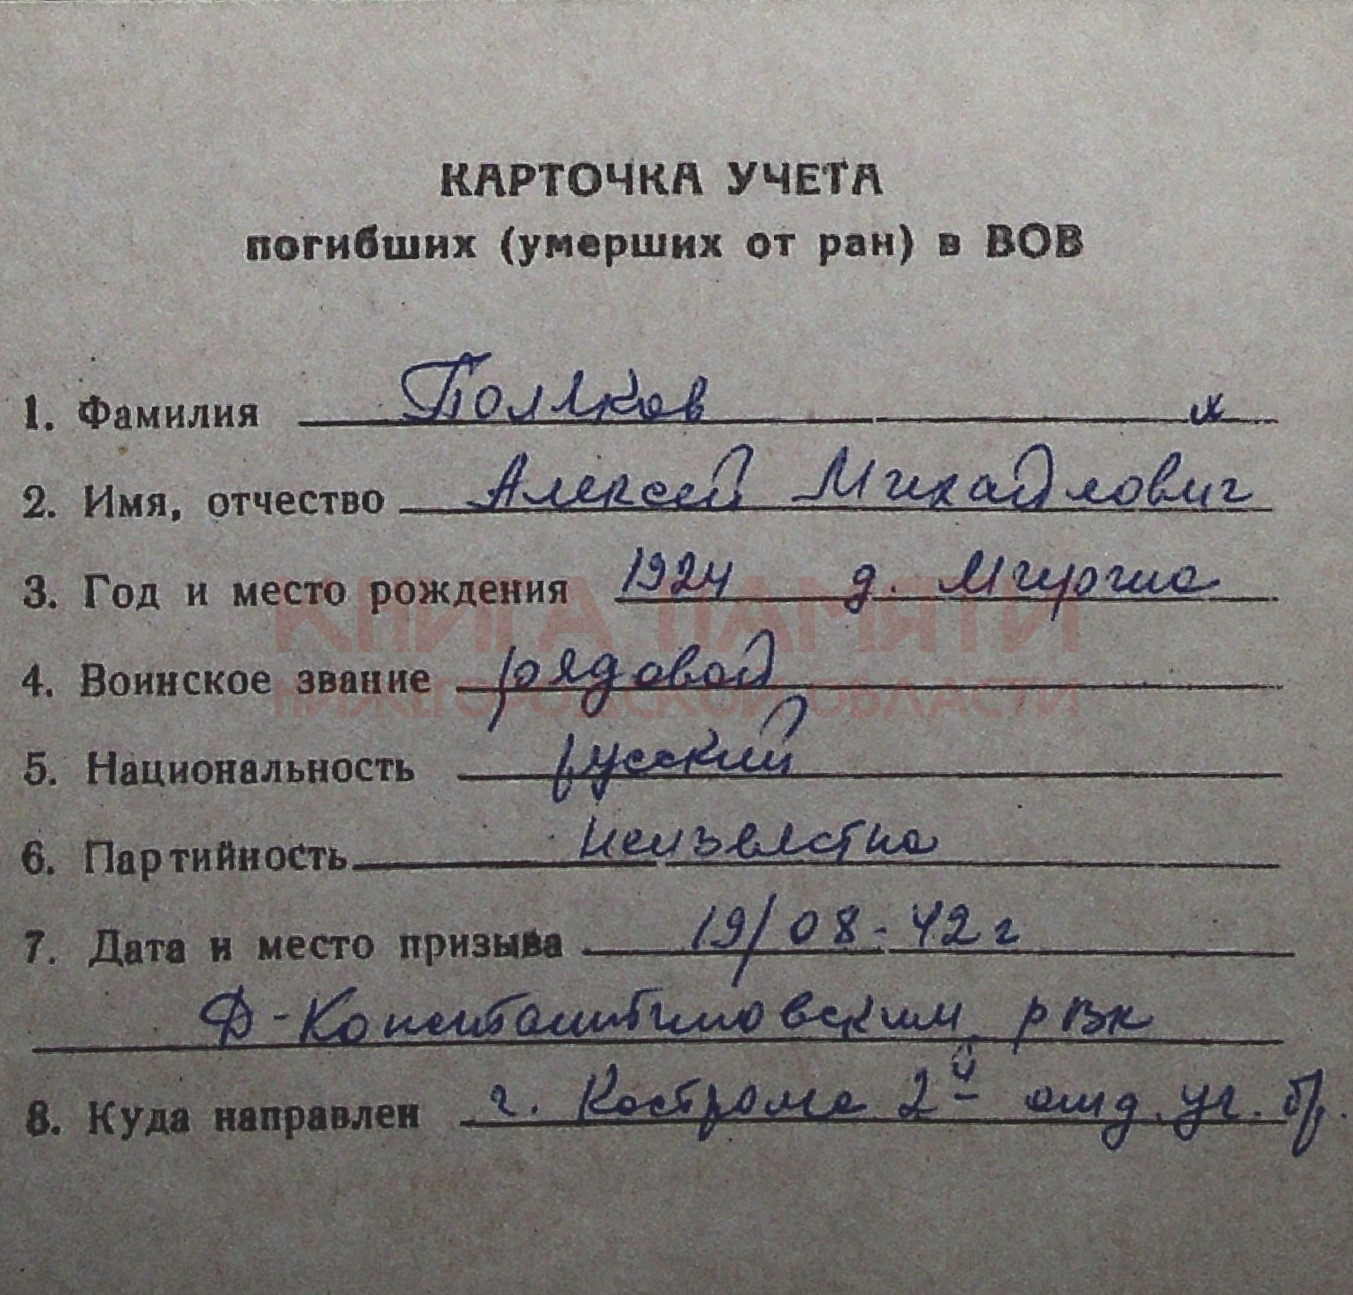 КАРТОЧКА УЧЕТА
погибших (умерших от ран) в ВОВ
1. Фамилия Поляков х
2. Имя, отчество Алексей Михайлович
3. Год и место рождения 1924 д. Мигргиа
КНИГА ПАМЯТИ
4. Воинское звание рядовой
НИЖЕГОРОДСКОЙ ОБЛАСТИ
5. Национальность русский
6. Партийность неизвестна
7. Дата и место призыва 19/08-42 г
Д-Константиновским рВк
8. Куда направлен г. Кострома 2й отд. уч. бр.